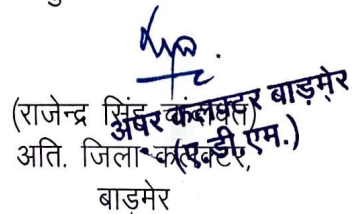 (राजेन्द्र सिंह चांदावत)
अति. जिला कलेक्टर,
बाड़मेर
अपर कलक्टर बाड़मेर
(ए.डी.एम.)